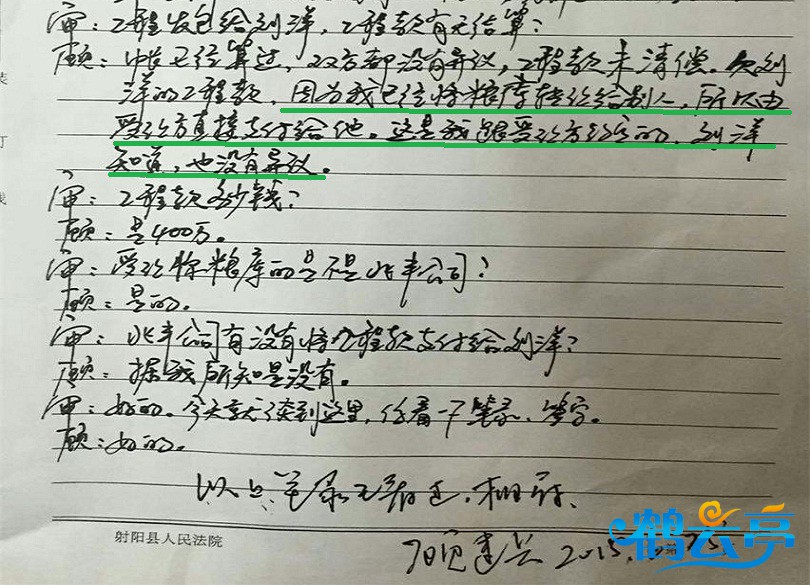 审：工程发包给刘洋，工程款有无结算？
顾：中途已经算过，双方都没有异议，工程款未清偿。欠刘
洋的工程款，因为我已经将粮库转让给别人，所以由
受让方直接支付给他。这是我跟受让方约定的，刘洋
知道，也没有异议。
审：工程款多少钱？
顾：是400万。
审：受让你粮库的是不是兆丰公司？
顾：是的。
审：兆丰公司有没有将工程款支付给刘洋？
顾：据我所知是没有。
审：好的。今天就谈到这里，你看一下笔录、签字。
顾：好的。
以上笔录无
射阳县人民法院
顾 2015.
鹤云亭